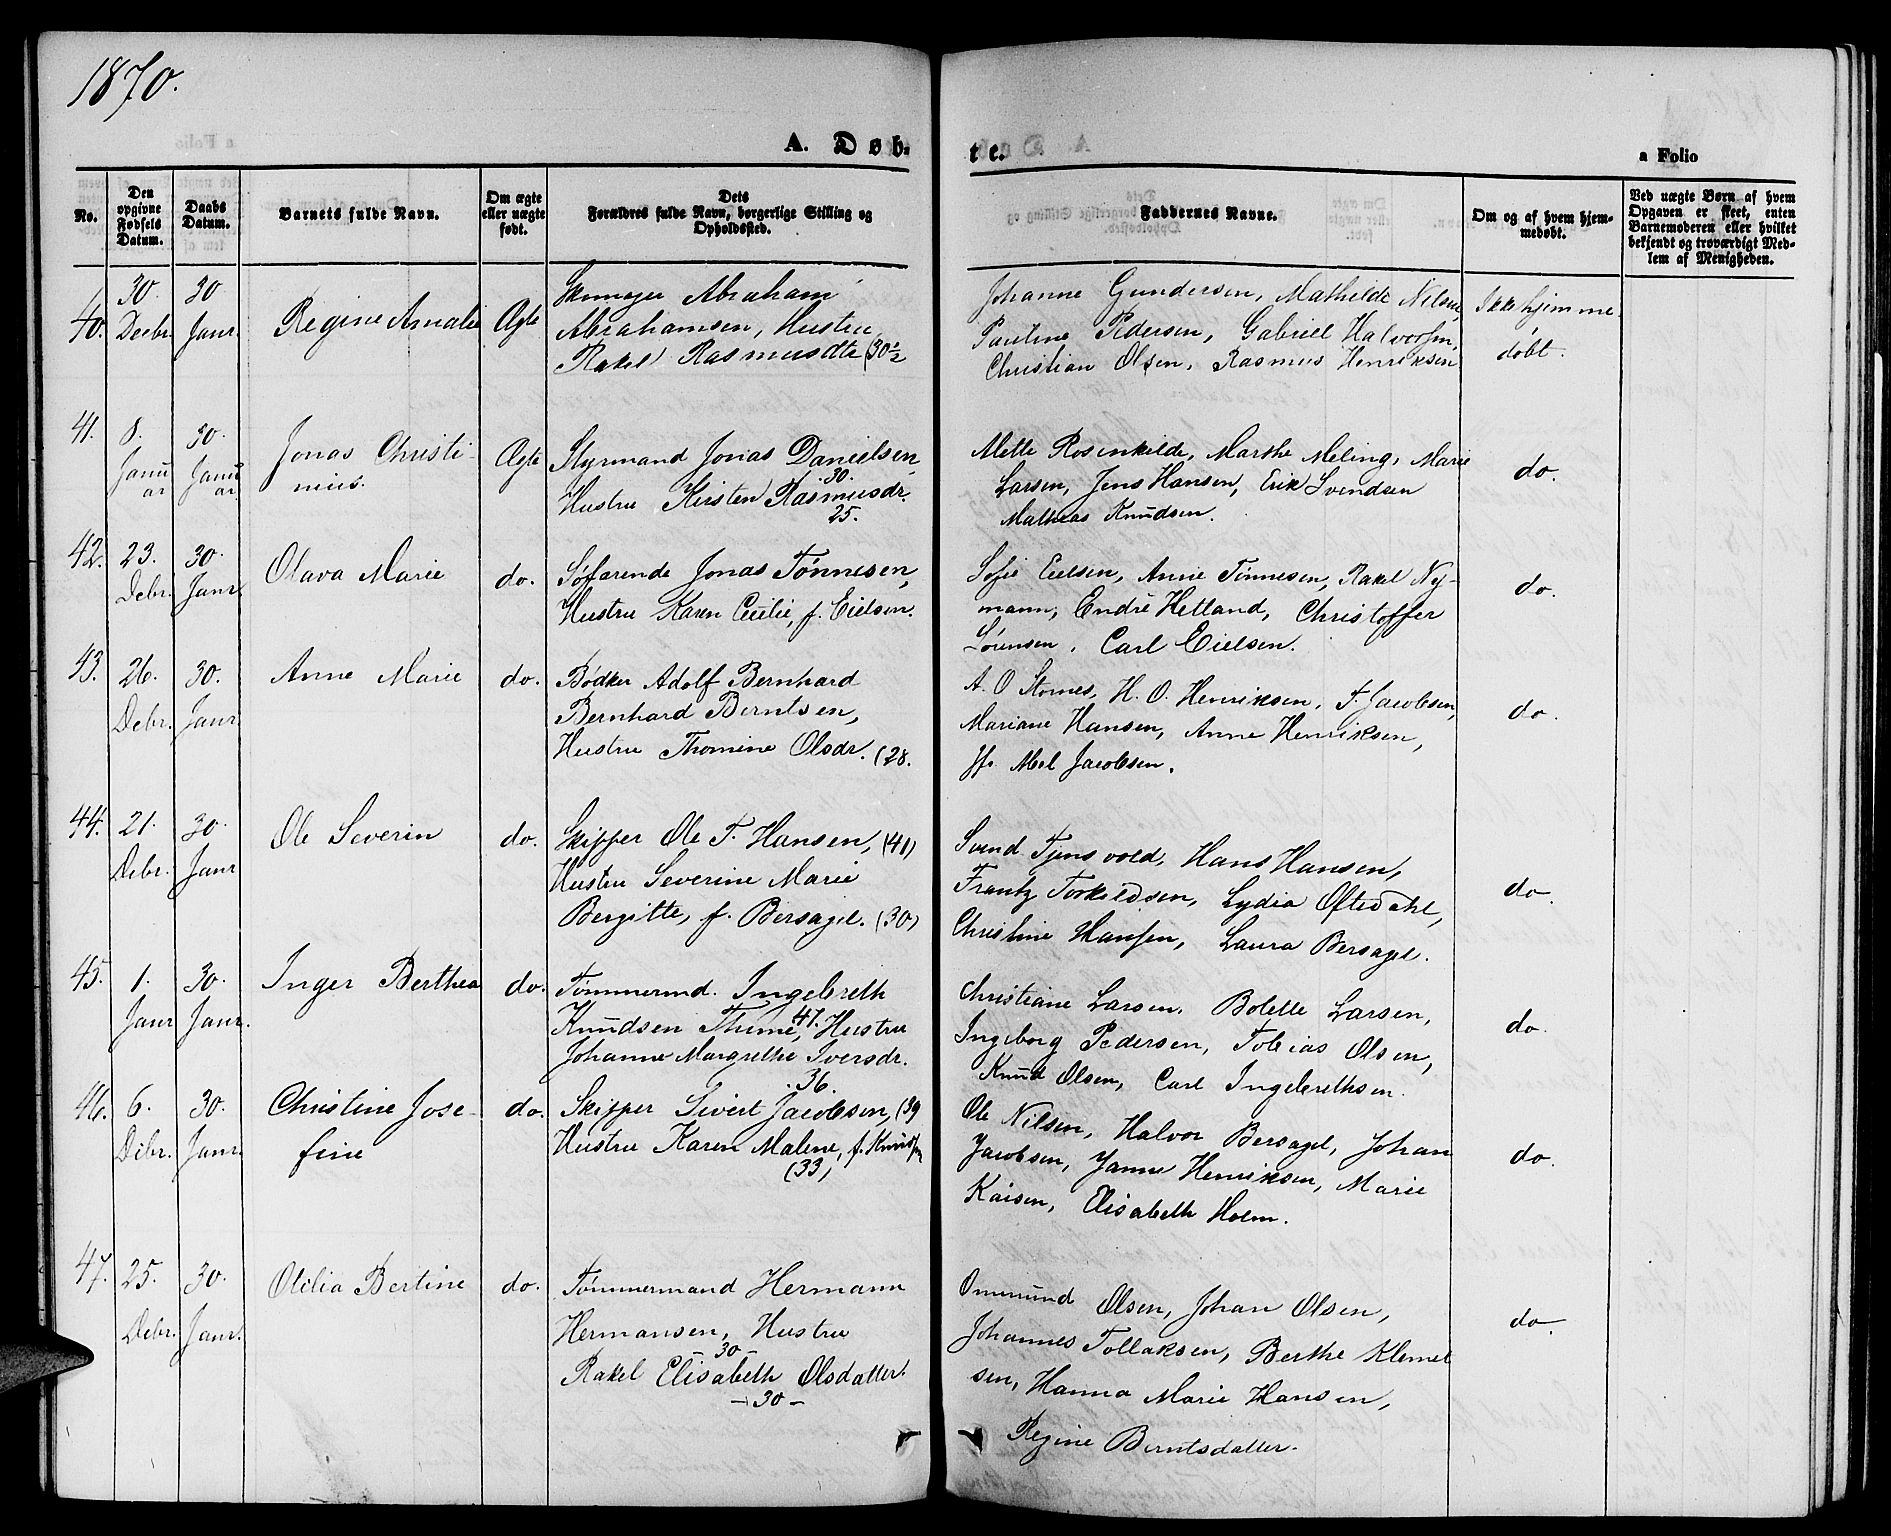 1870.
A. Døb-
te.
a Folio
No.
Den opgivne Fødsels Datum.
Daabs Datum.
Barnets fulde Navn.
Om ægte eller uægte født.
Dets Forældres fulde Navn, borgerlige Stilling og Opholdssted.
Faddernes Navne.
Om og af hvem hjemmedøbt.
Ved uægte Børn af hvem Opgaven er skeet, enten Barnemoderen eller hvilket bekjendt og troværdigt Medlem af Menigheden.
40.
30 Decbr
30 Janr
Regine Amalie
Ægte
Skomager Abraham
Abrahamsen, Hustru
Rakel Rasmusdtr (30½
Johanne Gundersen, Mathilde Nilsen,
Pauline Pedersen, Gabriel Halvorsen,
Christian Olsen, Rasmus Henriksen
Ikke hjemme
døbt.
41.
8. Janu
ar
30. Janu
ar
Jonas Christi-
nius.
Ægte
Styrmand Jonas Danielsen
30.
Hustru Kirsten Rasmusdr.
25.
Mette Rosenkilde, Marthe Meling, Marie
Larsen, Jens Hansen, Erik Svendsen
Mathias Knudsen.
do.
42.
23. Debr.
30. Janr
Olava Marie
do.
Søfarende Jonas Tønnesen,
Hustru Karen Cecilie, f. Eielsen.
Sofie Eielsen, Anne Tønnesen, Rakel Ny-
mann, Endre Hetland, Christoffer
Sørensen, Carl Eielsen.
do.
43.
26. Debr.
30. Janr
Anne Marie
do.
Bødker Adolf Bernhard
Bernhard Berntsen,
Hustru Thomine Olsdr. (28.
A. O Stornes, H. O. Henriksen, T. Jacobsen,
Mariane Hansen, Anne Henriksen,
Jfr. Mel Jacobsen.
do.
44.
21. Debr.
30. Janr
Ole Severin
do.
Skipper Ole T. Hansen, (41)
Hustru Severine Marie
Bergitte, f. Bersagel. (30)
Svend Tjensvold, Hans Hansen,
Frantz Torkildsen, Lydia Oftedahl,
Christine Hansen, Laura Bersagel.
do.
45.
1. Janr
30. Janr.
Inger Berthea
do.
Tømmermd. Ingebreth
Knudsen Thime, 41. Hustru
Johanne Margrethe Iversdr.
36.
Christiane Larsen, Bolette Larsen,
Ingeborg Pedersen, Tobias Olsen,
Knud Olsen, Carl Ingebrethsen.
do.
46.
6. Debr.
30. Janr.
Christine Jose-
fine
do.
Skipper Sivert Jacobsen, (39
Hustru Karen Malene, f. Knudsen
(33)
Ole Nilsen, Halvor Bersagel, Johan
Jacobsen, Janne Henriksen, Marie
Kaisen, Elisabeth Holm.
do.
47.
25. Debr.
30. Janr.
Otilia Bertine
do.
Tømmermand Hermann
Hermansen, Hustru
- 30 -
Rakel Elisabeth Olsdatter.
- 30 -
Ommund Olsen, Johan Olsen,
Johannes Tollaksen, Berthe Klemet
sen, Hanna Marie Hansen,
Regine Berntsdatter.
do.